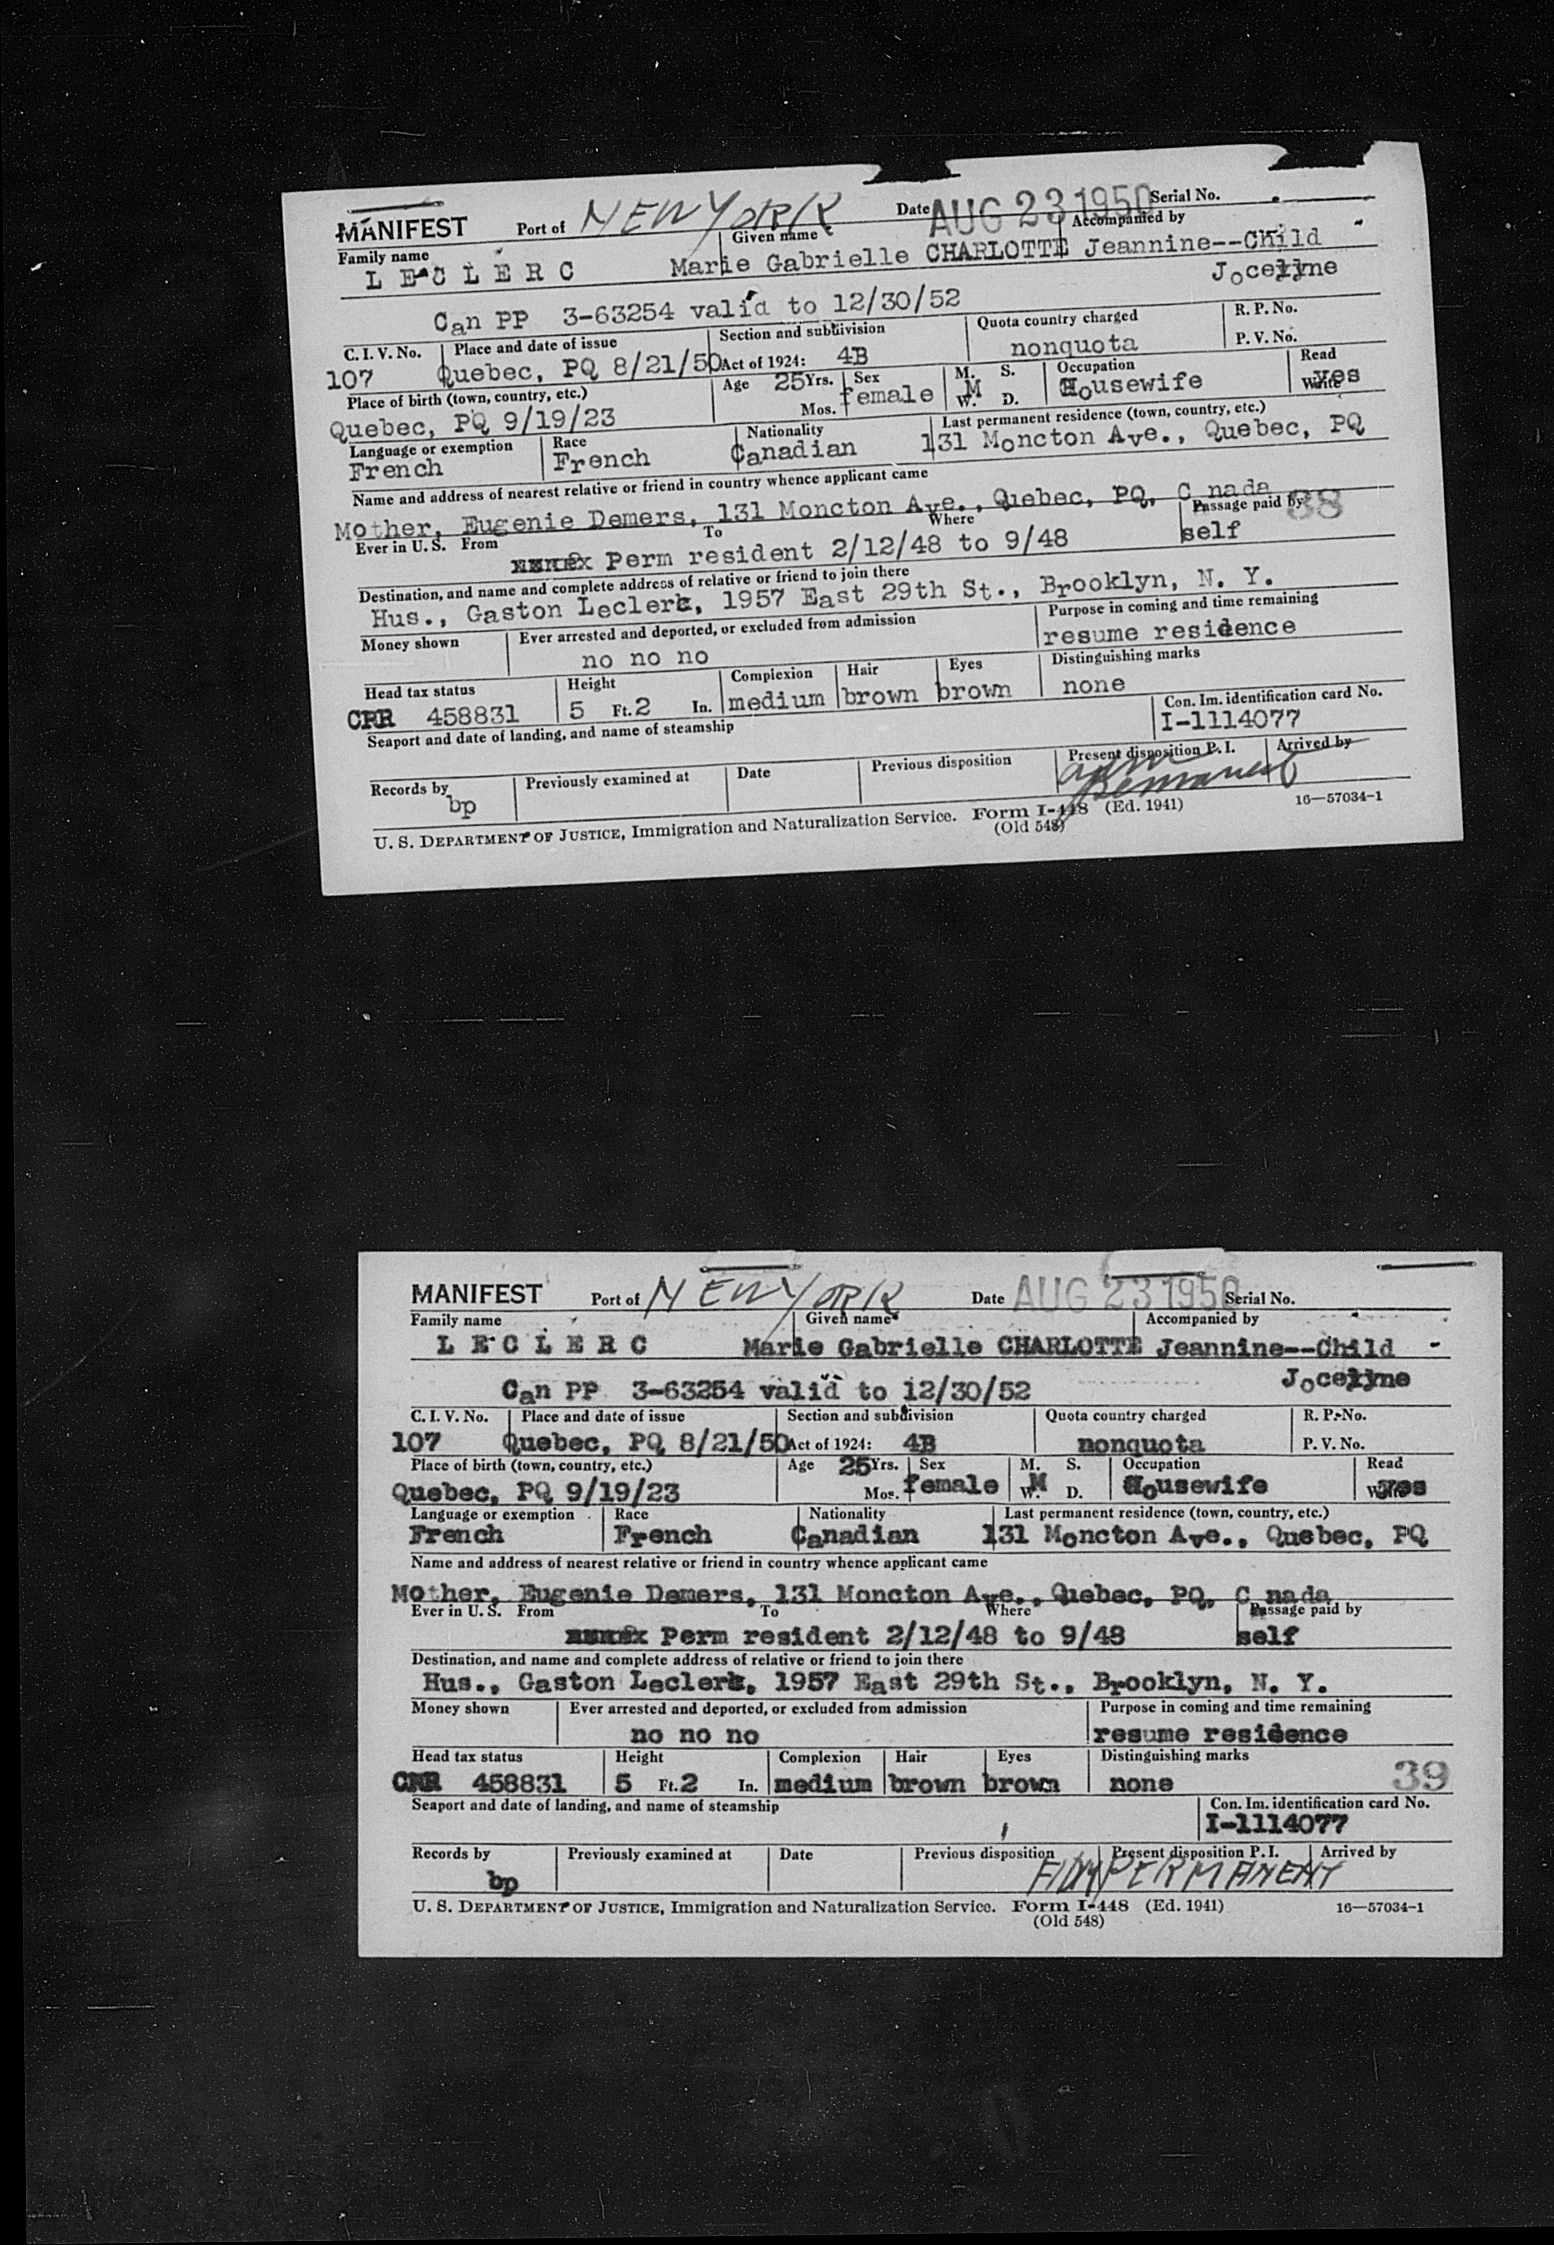 MANIFEST Port of NEW YORK Date AUG 23 1950 Serial No.
Family name Given name Accompanied by
L E C L E R C Marie Gabrielle CHARLOTTE Jeannine--Child
Jocelyne
Can PP 3-63254 valid to 12/30/52
C. I. V. No. Place and date of issue Section and subdivision Quota country charged R. P. No.
107 Quebec, PQ 8/21/50 Act of 1924: 4B nonquota P. V. No.
Place of birth (town, country, etc.) Age 25 Yrs. Sex M. S. Occupation Read
Quebec, PQ 9/19/23 Mos. female M W. D. Housewife Write yes
Language or exemption Race Nationality Last permanent residence (town, country, etc.)
French French Canadian 131 Moncton Ave., Quebec, PQ
Name and address of nearest relative or friend in country whence applicant came
Mother, Eugenie Demers, 131 Moncton Ave., Quebec, PQ, C nada 38
Ever in U. S. From To Where Passage paid by
Perm resident 2/12/48 to 9/48 self
Destination, and name and complete address of relative or friend to join there
Hus., Gaston Leclerc, 1957 East 29th St., Brooklyn, N. Y.
Money shown Ever arrested and deported, or excluded from admission Purpose in coming and time remaining
no no no resume residence
Head tax status Height Complexion Hair Eyes Distinguishing marks
CRR 458831 5 Ft. 2 In. medium brown brown none
Seaport and date of landing, and name of steamship Con. Im. identification card No.
I-1114077
Records by Previously examined at Date Previous disposition Present disposition P. I. Arrived by
bp adm Permanent
U. S. DEPARTMENT OF JUSTICE, Immigration and Naturalization Service. Form I-448 (Ed. 1941) 16—57034-1
(Old 548)
MANIFEST Port of NEW YORK Date AUG 23 1950 Serial No.
Family name Given name Accompanied by
L E C L E R C Marie Gabrielle CHARLOTTE Jeannine--Child
Jocelyne
Can PP 3-63254 valid to 12/30/52
C. I. V. No. Place and date of issue Section and subdivision Quota country charged R. P. No.
107 Quebec, PQ 8/21/50 Act of 1924: 4B nonquota P. V. No.
Place of birth (town, country, etc.) Age 25 Yrs. Sex M. S. Occupation Read
Quebec, PQ 9/19/23 Mos. female M W. D. Housewife Write yes
Language or exemption Race Nationality Last permanent residence (town, country, etc.)
French French Canadian 131 Moncton Ave., Quebec, PQ
Name and address of nearest relative or friend in country whence applicant came
Mother, Eugenie Demers, 131 Moncton Ave., Quebec, PQ, C nada
Ever in U. S. From To Where Passage paid by
Perm resident 2/12/48 to 9/48 self
Destination, and name and complete address of relative or friend to join there
Hus., Gaston Leclerc, 1957 East 29th St., Brooklyn, N. Y.
Money shown Ever arrested and deported, or excluded from admission Purpose in coming and time remaining
no no no resume residence
Head tax status Height Complexion Hair Eyes Distinguishing marks
CRR 458831 5 Ft. 2 In. medium brown brown none 39
Seaport and date of landing, and name of steamship Con. Im. identification card No.
I-1114077
Records by Previously examined at Date Previous disposition Present disposition P. I. Arrived by
bp PERMANENT
U. S. DEPARTMENT OF JUSTICE, Immigration and Naturalization Service. Form I-448 (Ed. 1941) 16—57034-1
(Old 548)